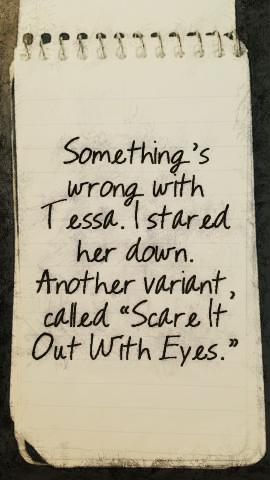 Something's
wrong with
Tessa. I stared
her down.
Another variant,
called “Scare It
Out With Eyes.”